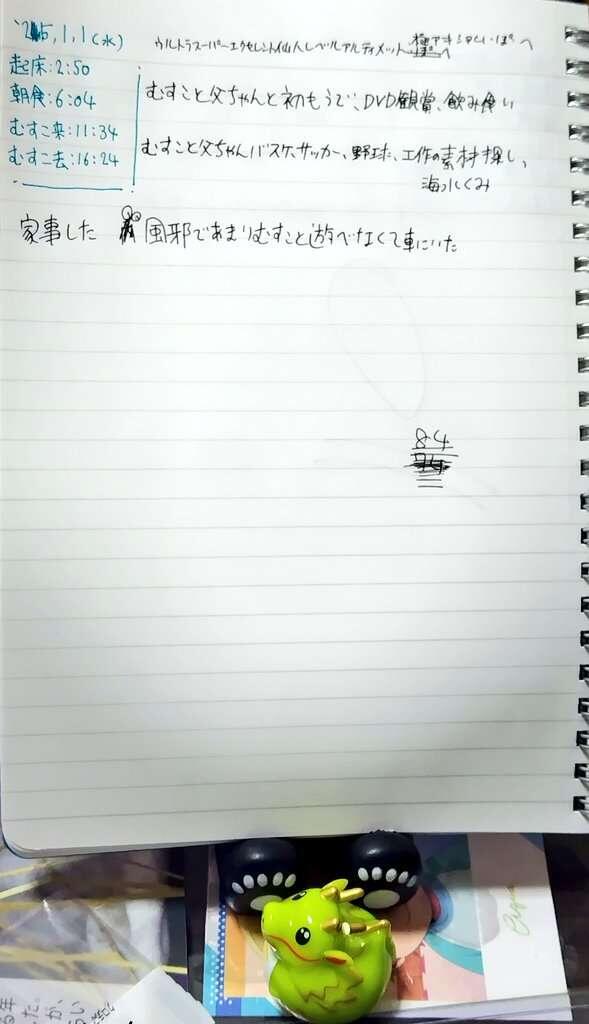 '25,1,1(水)
ウルトラスーパーエクセレント仙人レベルアルティメット
起床:2:50
朝食:6:04
むすこ来:11:34
むすこ去:16:24
むすこと父ちゃんと初もうで、DVD観賞、飲み食い
むすこと父ちゃんバスケ、サッカー、野球、工作の素材探し、
海水くみ
家事した 風邪であまりむすこと遊べなくて車にいた
84